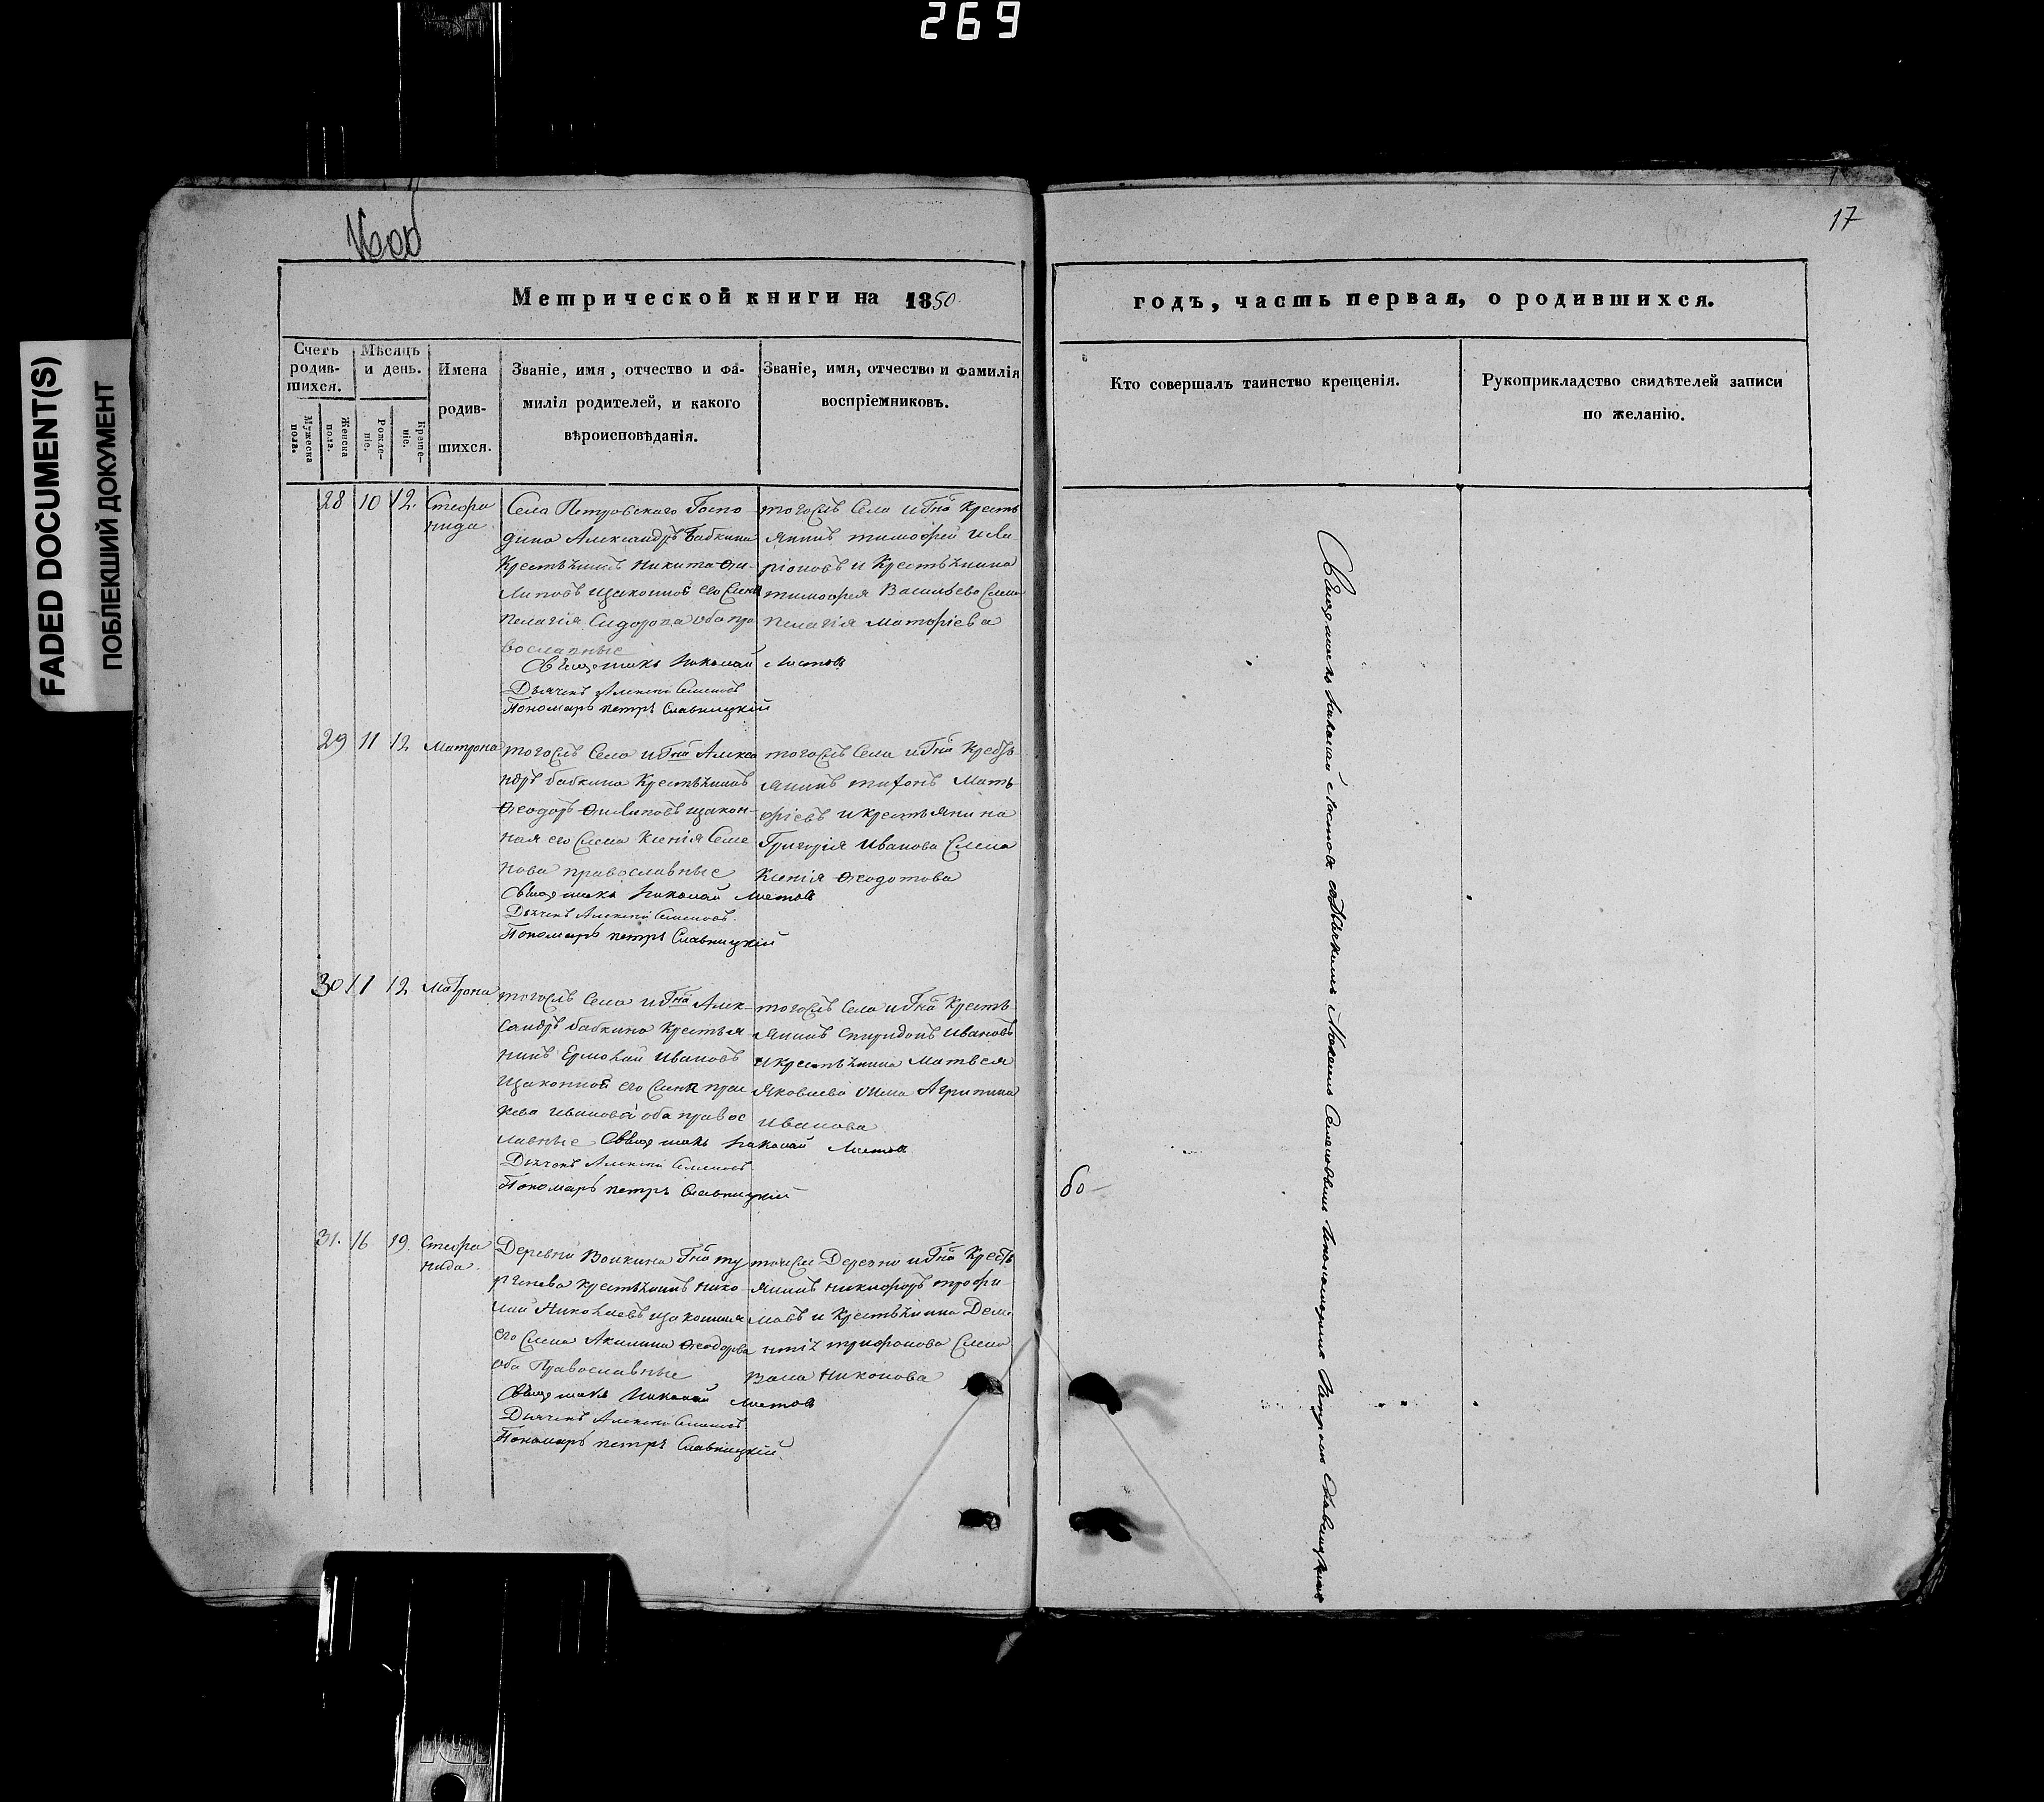 269
FADED DOCUMENT(S)
ПОБЛЕКШИЙ ДОКУМЕНТ
16об
17
Метрической книги на 1850
годъ, часть первая, о родившихся.
Счетъ родив-шихся.
Мужеска пола.
Женска пола.
Мѣсяцъ и день.
Рожде-ніе.
Креще-ніе.
Имена
родив-
шихся.
Званіе, имя, отчество и фа-
милія родителей, и какого
вѣроисповѣданія.
Званіе, имя, отчество и фамилія
воспріемниковъ.
Кто совершалъ таинство крещенія.
Рукоприкладство свидѣтелей записи
по желанію.
28 10 12. Стефа
нида
Села Петровскаго Госпо-
дина Александръ Бабкина
Крестьянинъ Никита Фи-
липовъ изаконноѣ его
Пелагія Сидорова оба пра
вославные
тогожъ Села и Гна Кресть
янинъ тимофей Ила
ріоновъ и Крестьянина
тимофея Васильева
Пелагія Матфіева
Священикъ Николай Листовъ
Дьячекъ Алексей Семеновъ
Пономаръ петръ Славницкій
29 11 12 Матрона
тогожъ Села и Гна Алекса
ндръ бабкина Крестьянинъ
Ѳеодоръ Филиповъ изакон-
ная его жена Ксенія Семе
нова православные
тогожъ Села и Гна Крестъ-
янинъ Матъ
фіевъ и крестьянина
Григорія Иванова жена
Ксенія Ѳеодотова
Священикъ Николай Листовъ
Дьячекъ Алексей Семеновъ.
Пономаръ петръ Славницкій
30 11 12 Матрона
тогожъ Села и Гна Алек-
сандръ бабкина Крестья
нинъ Ермолай Ивановъ
изаконной его
Ивановой оба правос
лавные
тогожъ Села и Гна Кресть-
янинъ Спиридонъ Ивановъ
и крестьянина Матвея
Яковлева жена Агрипина
Иванова
Священикъ Николай Листовъ
Дьячекъ Алексей Семеновъ
Пономаръ петръ Славницкій
31. 16 19. Стефа
нида.
Деревни Волкина Гна ту
ргенева Крестьянинъ Нико-
лай Николаевъ изаконная
его жена Акилина Ѳеодорова
оба Православные
тойже Деревни и Гна Кресть
янинъ никифоръ трофи-
мовъ и Крестьянина Деме
нтія трифонова жена
Никонова
Священикъ Николай Листовъ
Дьячекъ Алексей Семеновъ
Пономаръ петръ Славницкій.
Священикъ Николай Листовъ Алексеемъ Семеновымъ ипономаремъ Петромъ Славницкимъ